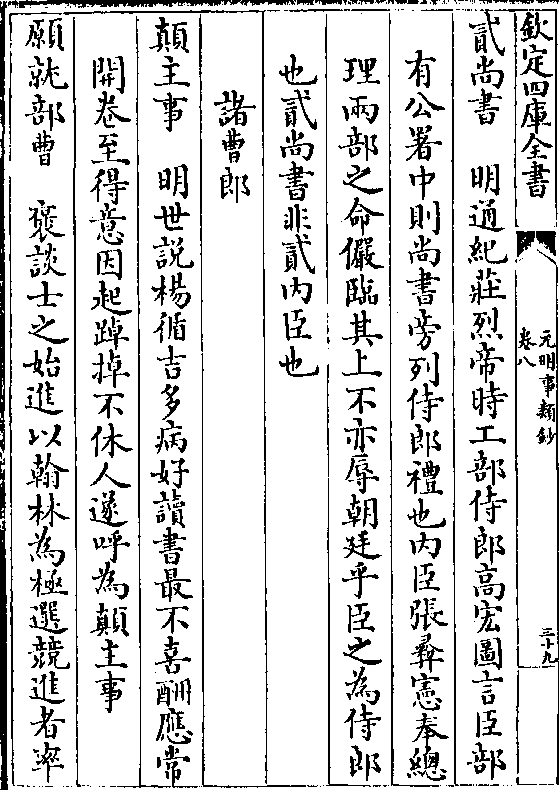 欽定四庫全書
元明事類鈔
卷八
三十九
貳尚書　明通紀莊烈帝時工部侍郎高宏圖言臣部
有公署中則尚書旁列侍郎禮也内臣張彛憲奉總
理兩部之命儼臨其上不亦辱朝廷乎臣之為侍郎
也貳尚書非貳内臣也
諸曹郎
顛主事　明世説楊循吉多病好讀書最不喜酬應常
開卷至得意因起踔掉不休人遂呼為顛主事
願就部曹　襃談士之始進以翰林為極選競進者率